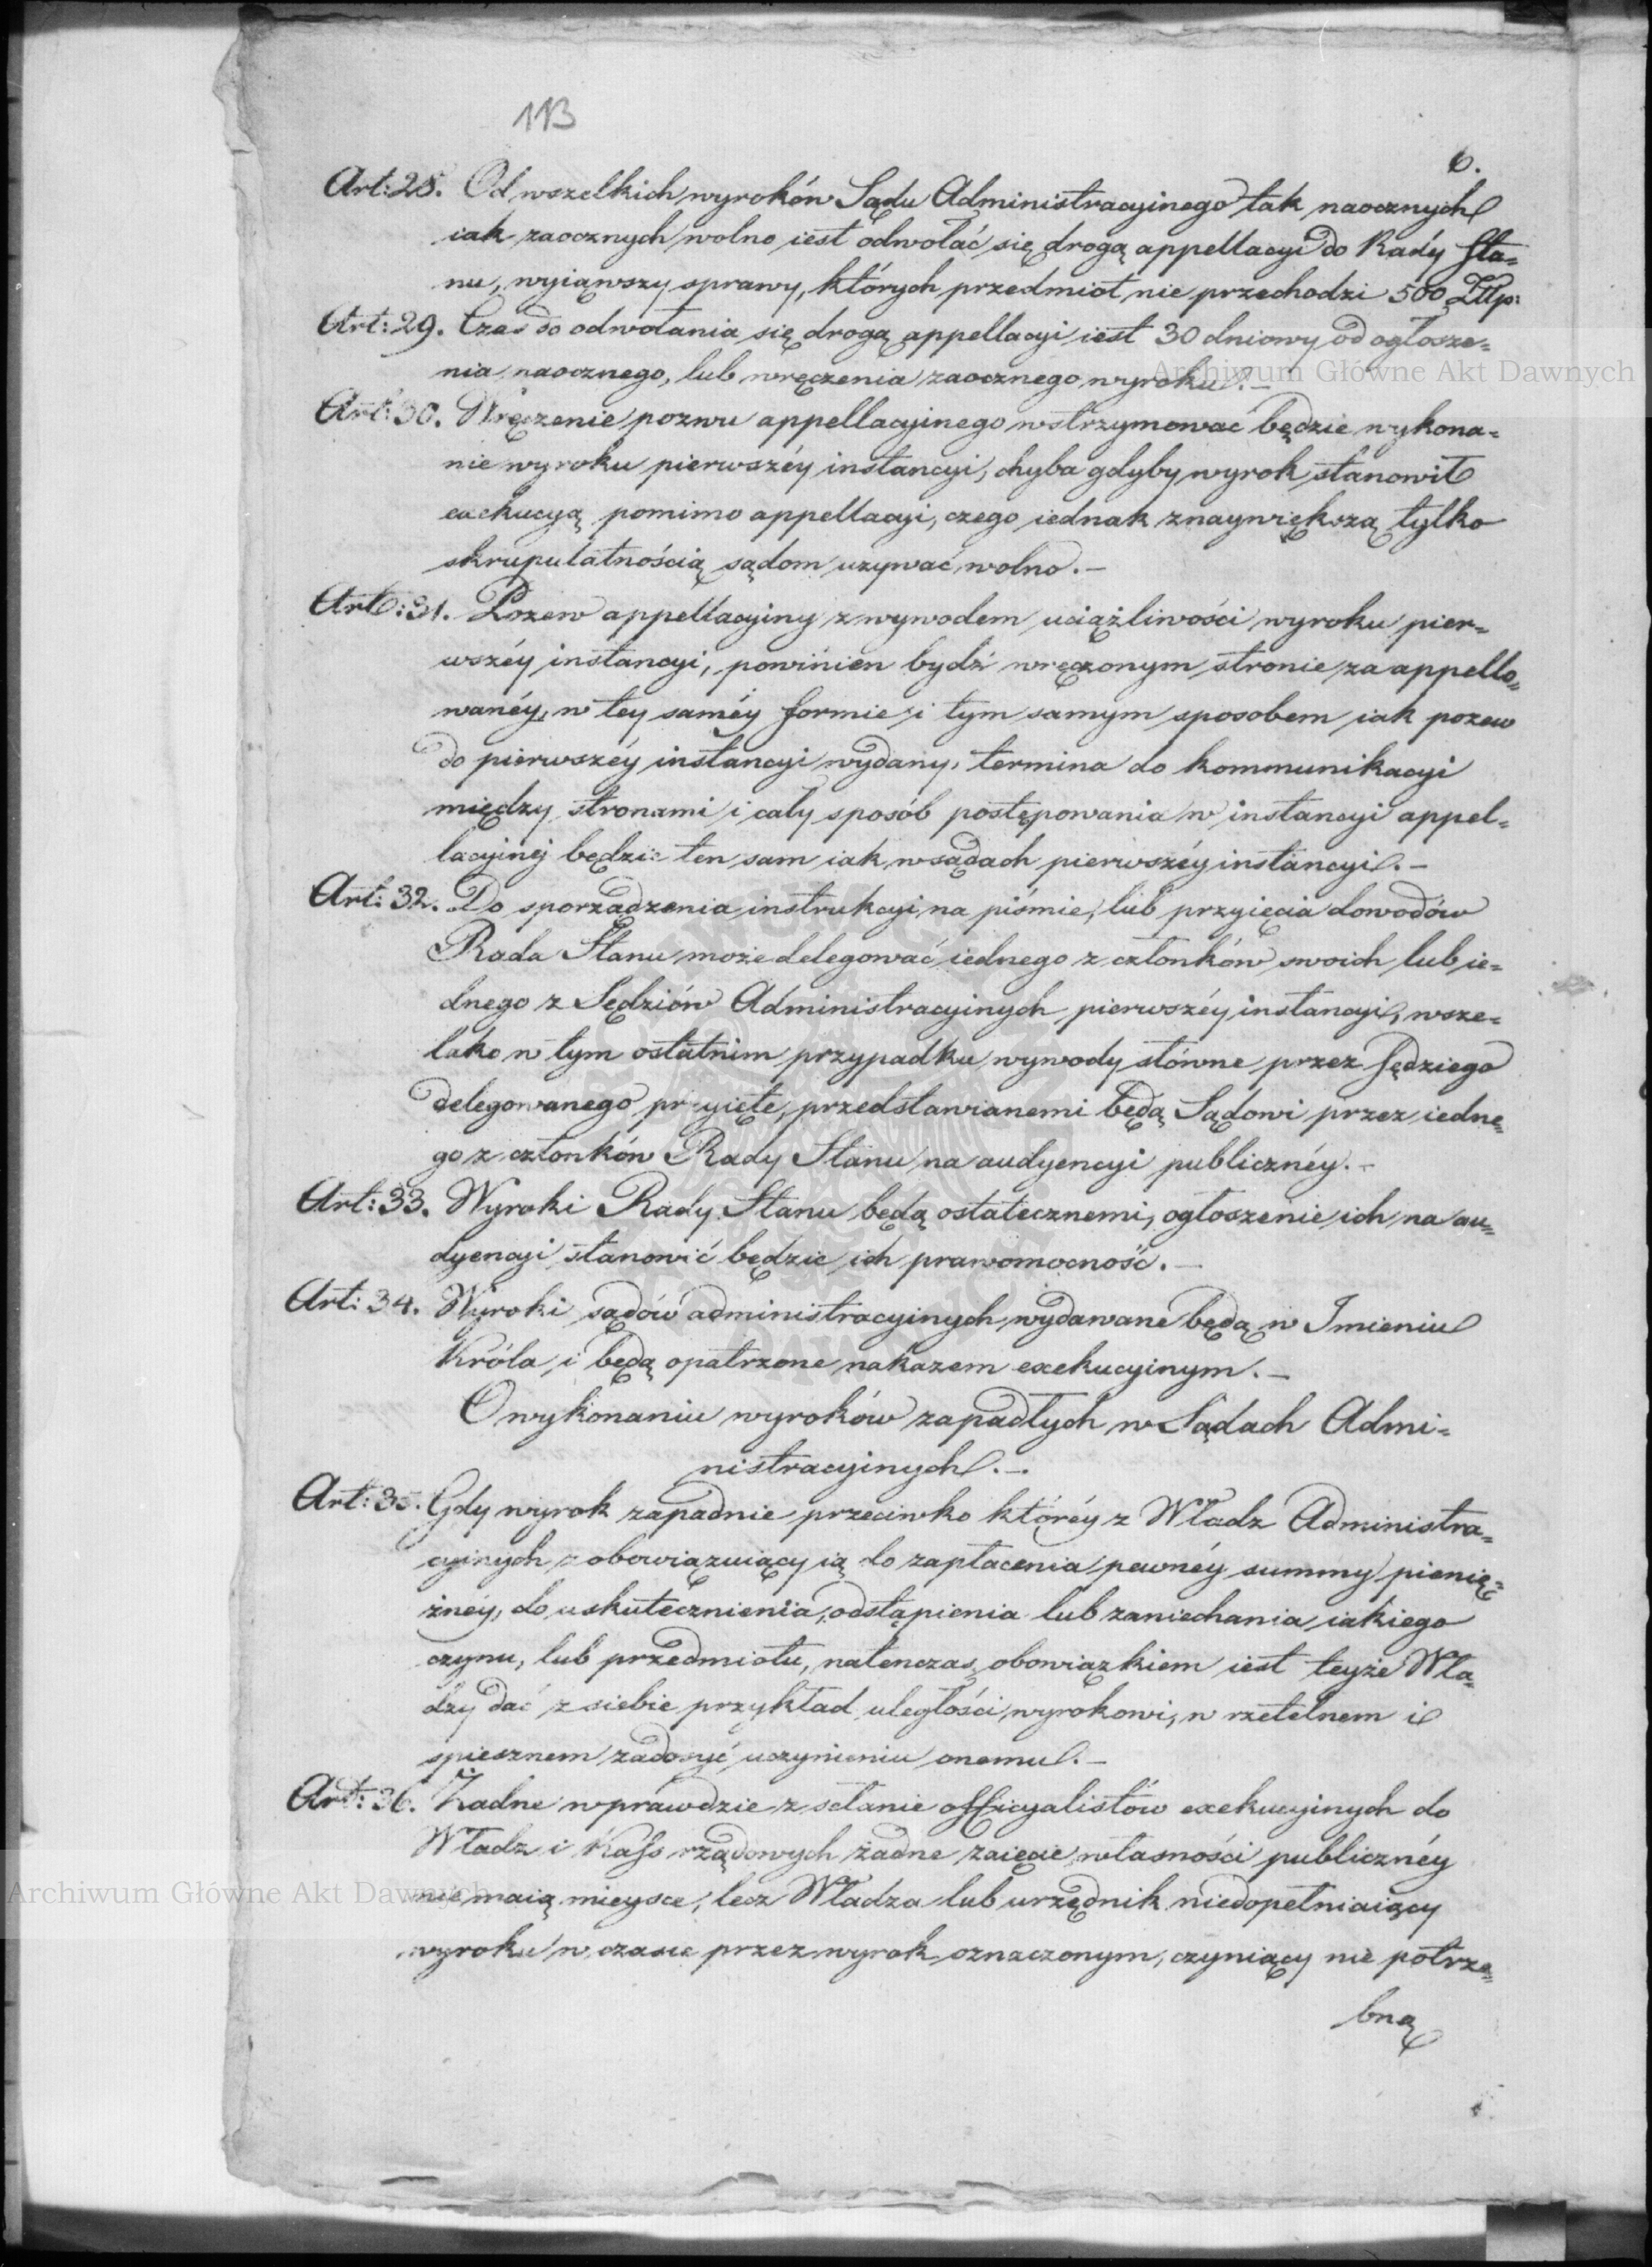 113
6.
Art: 28. Od wszelkich wyroków Sądu Administracyinego tak naocznych
iak zaocznych wolno iest odwołać się drogą appellacyi do Rady Sta=
nu, wyiąwszy sprawy, których przedmiot nie przechodzi 500 Złłp:
Art: 29. Czas do odwołania się drogą appellacyi iest 30 dniowy od ogłosze=
nia naocznego, lub wręczenia zaocznego wyroku.–
Art: 30. Wręczenie pozwu appellacyinego wstrzymować będzie wykona=
nie wyroku pierwszéy instancyi, chyba gdyby wyrok stanowił
exekucyą pomimo appellacyi, czego iednak z naywiększą tylko
skrupulatnością sądom uzywać wolno.–
Art: 31. Pozew appellacyiny z wywodem uciążliwości wyroku pier=
wszéy instancyi, powinien bydź wręczonym stronie za appello=
wanéy, w tey saméy formie i tym samym sposobem iak pozew
do pierwszéy instancyi wydany, termina do kommunikacyi
między stronami i cały sposób postępowania w instancyi appel=
lacyinej będzie ten sam iak w sądach pierwszéy instancyi.–
Art: 32. Do sporządzenia instrukcyi na piśmie, lub przyięcia dowodów
Rada Stanu może delegować iednego z członków swoich lub ie=
dnego z Sędziów Administracyinych pierwszéy instancyi, wsze=
lako w tym ostatnim przypadku wywody słówne przez Sędziego
delegowanego przyięte, przedstawianemi będą Sądowi przez iedne=
go z członków Rady Stanu na audyencyi publicznéy.–
Art: 33. Wyroki Rady Stanu będą ostatecznemi, ogłoszenie ich na au=
dyencyi stanowić będzie ich prawomocność.–
Art: 34. Wyroki sądów administracyinych wydawane będą w Imieniu
Króla, i będą opatrzone nakazem exekucyinym.–
O wykonaniu wyroków zapadłych w Sądach Admi=
nistracyinych.–
Art: 35. Gdy wyrok zapadnie przeciwko któréy z Władz Administra=
cyinych obowiązuiący ią do zapłacenia pewnéy summy pienię=
żnéy, do uskutecznienia, odstąpienia lub zaniechania iakiego
czynu, lub przedmiotu, natenczas obowiązkiem iest teyże Wła=
dzy dać z siebie przykład uległości wyrokowi, w rzetelnem i
spiesznem zadosyć uczynieniu onemu.–
Art: 36. Żadne wprawdzie zsełanie officyalistów exekucyinych do
Władz i Kass rządowych żadne zaięcie własności publicznéy
nie maią mieysce, lecz Władza lub urzędnik niedopełniaiący
wyroku w czasie przez wyrok oznaczonym, czyniący nie potrze=
bną
Archiwum Główne Akt Dawnych
Archiwum Główne Akt Dawnych